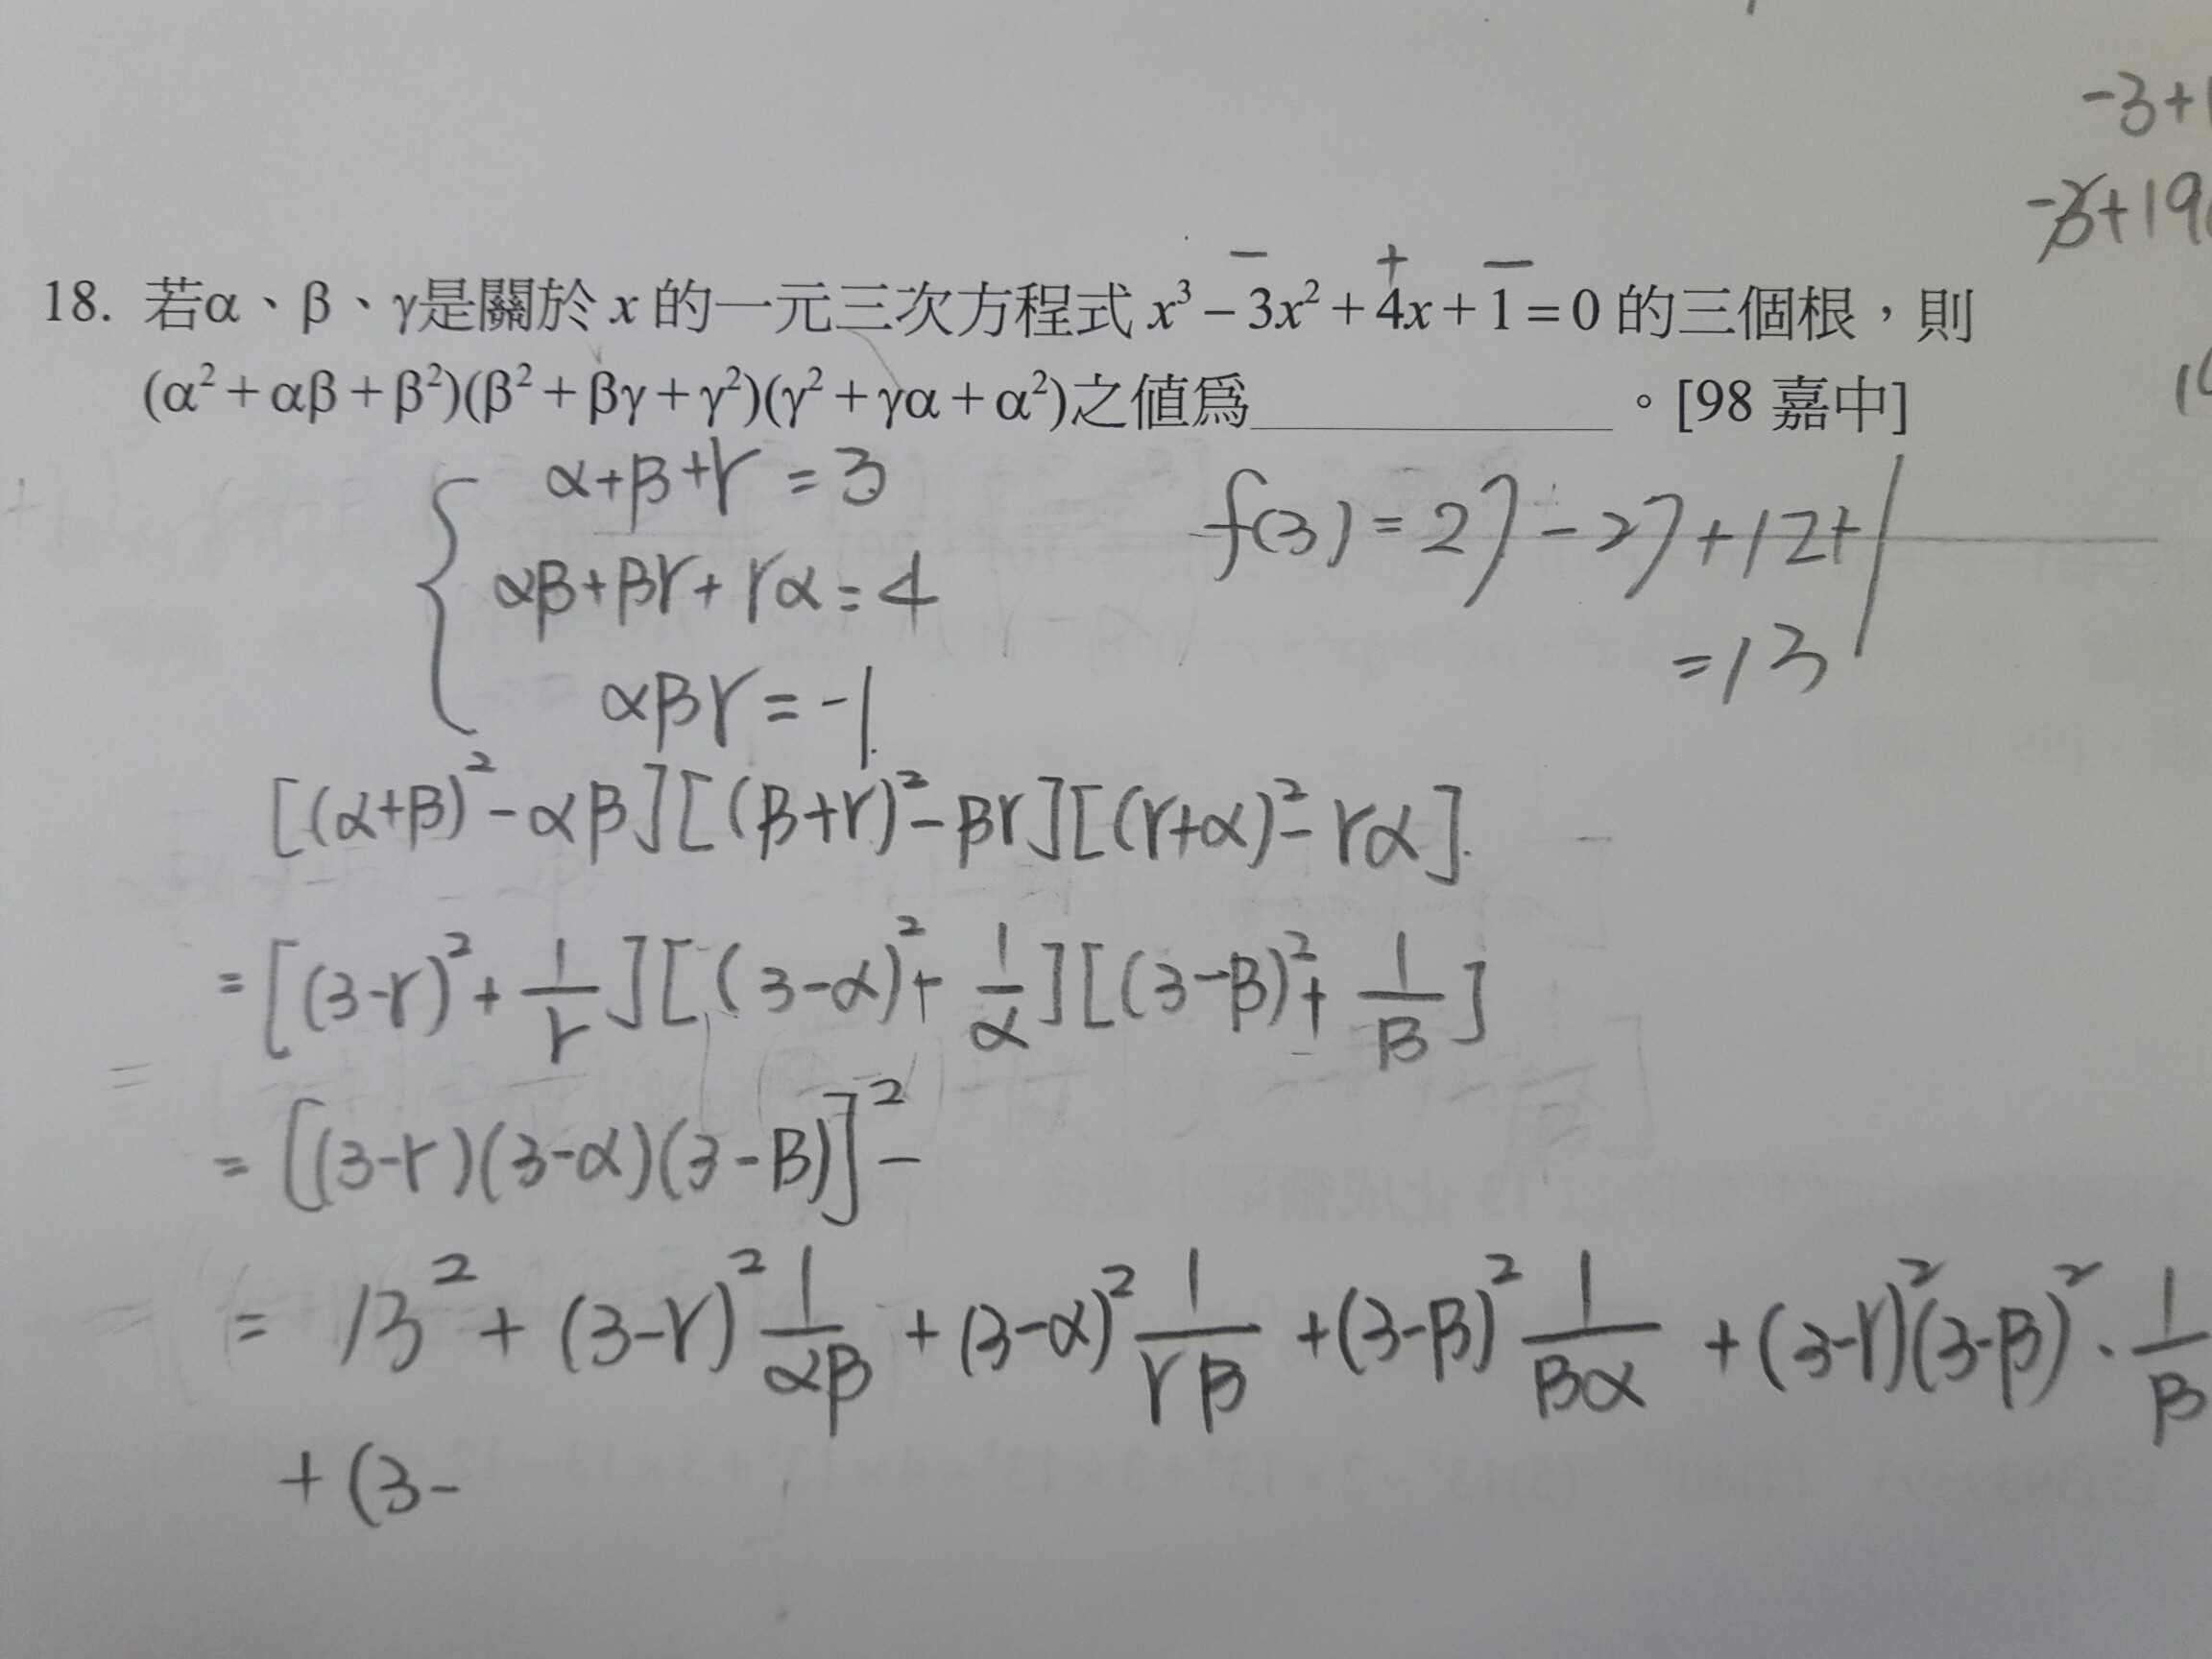 -3+1
-3+19
18. 若α、β、γ是關於 x 的一元三次方程式 x³ − 3x² + 4x + 1 = 0 的三個根，則
− + −
(α² + αβ + β²)(β² + βγ + γ²)(γ² + γα + α²)之値爲＿＿＿＿＿＿。[98 嘉中]
α+β+r = 3
αβ+βr+rα = 4
αβr = -1
f(3) = 27-27+12+1
=13
[(α+β)²-αβ][(β+r)²-βr][(r+α)²-rα]
= [(3-r)²+1/r][(3-α)²+1/α][(3-β)²+1/β]
= [(3-r)(3-α)(3-β)]² −
= 13² + (3-r)² 1/αβ + (3-α)² 1/rβ + (3-β)² 1/βα + (3-r)²(3-β)² · 1/β
+ (3-